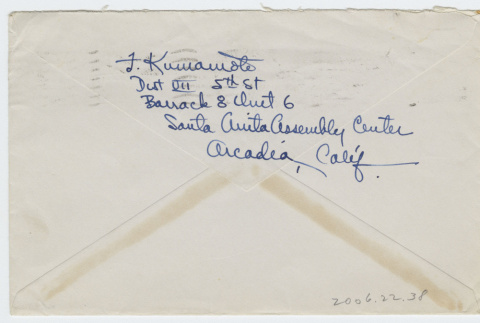 J. Kumamoto
Dist VII 5th St
Barrack 8 Unit 6
Santa Anita Assembly Center
Arcadia, Calif.
2006.22.38